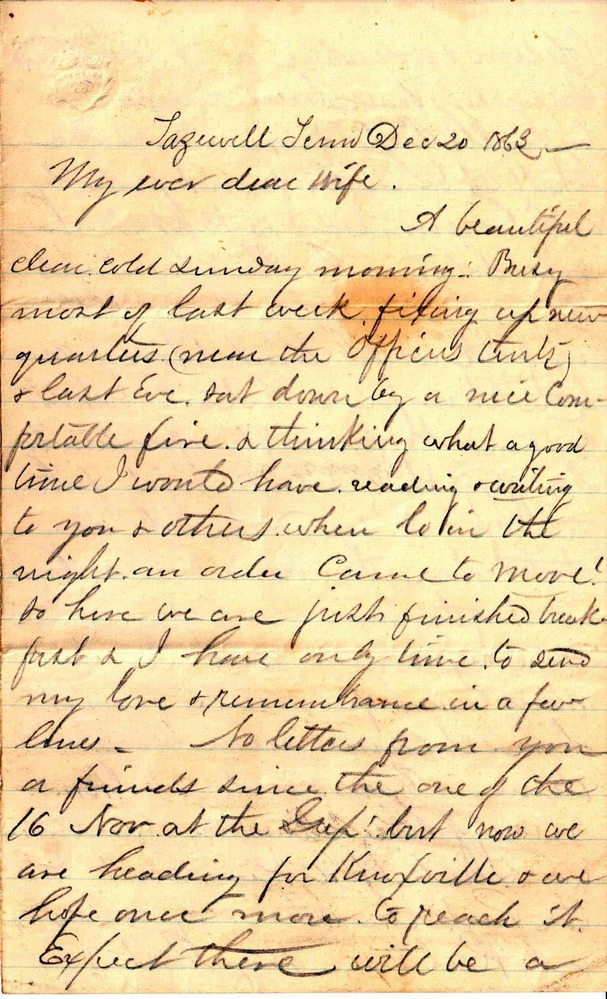 Tazewell Tenn Dec 20 1863 —
My ever dear wife.
A beautiful
clear cold sunday morning. Busy
most of last week fixing up new
quarters (near the Officers tents)
& last Eve. sat down by a nice Com-
fortable fire. & thinking what a good
time I would have reading & writing
to you & others. when lo in the
night an order Came to move!
so here we are just finished break-
fast & I have only time to send
my love & remembrance in a few
lines – No letters from you
or friends since the one of the
16 Nov at the Gap! but now we
are heading for Knoxville & we
hope once more to reach it.
Expect there will be a